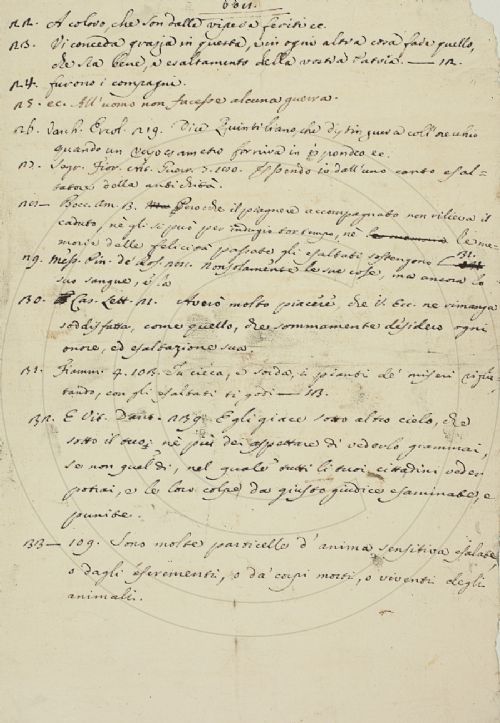 A coloro, che son dalle vipere feriti ec.
Vi conceda grazia in questa, e in ogni altra cosa fare quello,
che sia bene, e esaltamento della vostra Patria.
furono i compagni.
ec. All'uomo non facesse alcuna guerra.
Varch. Ercol. Dice Quintiliano, che distingueva coll'orecchio
quando un verso esametro forniva in ispondeo ec.
Essendo io dall'uno canto esal-
tatore della antichità.
Bocc. Perocchè il piagnere accompagnato non rilieva il
caduto, nè gli si può per indugio tor tempo, nè le me-
morie delle felicità passate gli esaltati sostengono
Non solamente le sue cose, ma ancora lo
suo sangue, e la
Cas. Lett. Averò molto piacere, che V. Ecc. ne rimanga
soddisfatta, come quello, che sommamente desidero ogni
onore, ed esaltazione sua.
Fiamm. 4. Tu cieca, e sorda, i pianti de' miseri rifiu-
tando, con gli esaltati ti godi
E Vit. Dant. Egli giace sotto altro cielo, che
sotto il tuo; nè più dei aspettare di vederlo giammai,
se non quel dì, nel quale tutti li tuoi cittadini veder
potrai, e le lor colpe da giusto giudice esaminate, e
punite.
109. Sono molte particelle d'anima sensitiva esalate,
o dagli escrementi, o da' corpi morti, o viventi degli
animali.